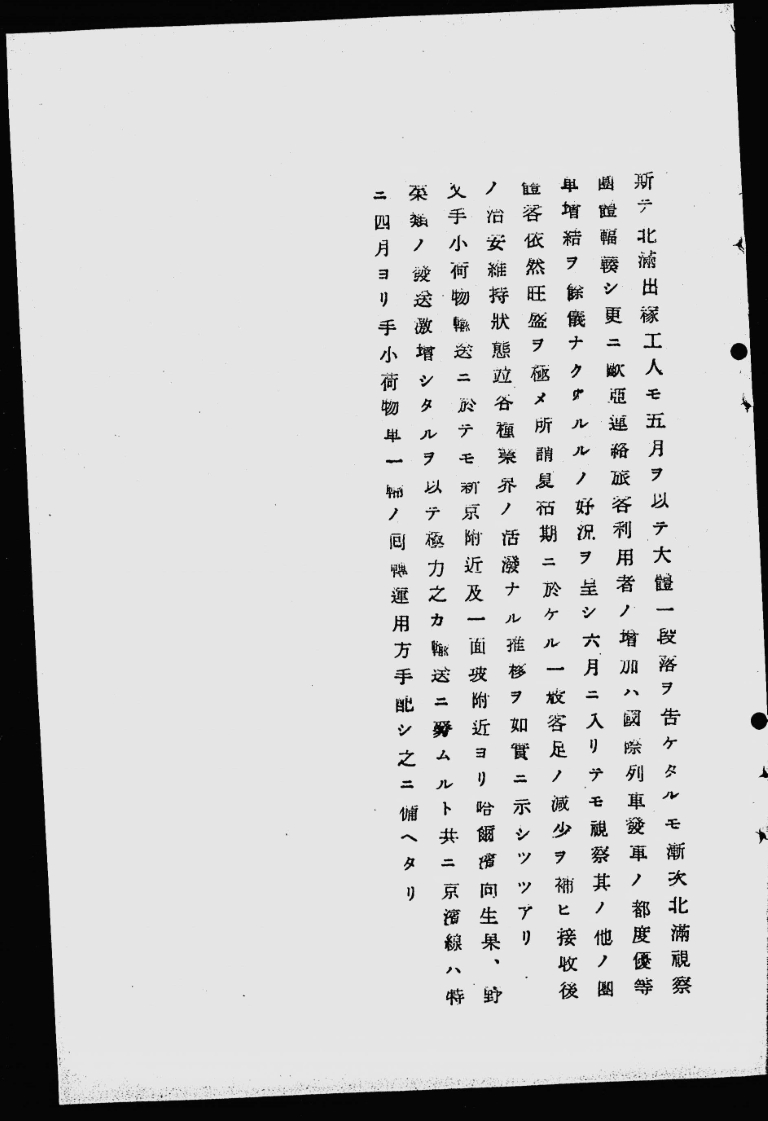 斯テ北滿出稼工人モ五月ヲ以テ大體一段落ヲ告ケタルモ漸次北滿視察
團體輻輳シ更ニ歐亞連絡旅客利用者ノ增加ハ國際列車發車ノ都度優等
車增結ヲ餘儀ナクサルルノ好況ヲ呈シ六月ニ入リテモ視察其ノ他ノ團
體客依然旺盛ヲ極メ所謂夏枯期ニ於ケル一般客足ノ減少ヲ補ヒ接收後
ノ治安維持狀態竝各種業界ノ活潑ナル推移ヲ如實ニ示シツツアリ
又手小荷物輸送ニ於テモ新京附近及一面坡附近ヨリ哈爾濱向生果、野
菜類ノ發送激增シタルヲ以テ極力之カ輸送ニ努ムルト共ニ京濱線ハ特
ニ四月ヨリ手小荷物車一輛ノ回轉運用方手配シ之ニ備ヘタリ